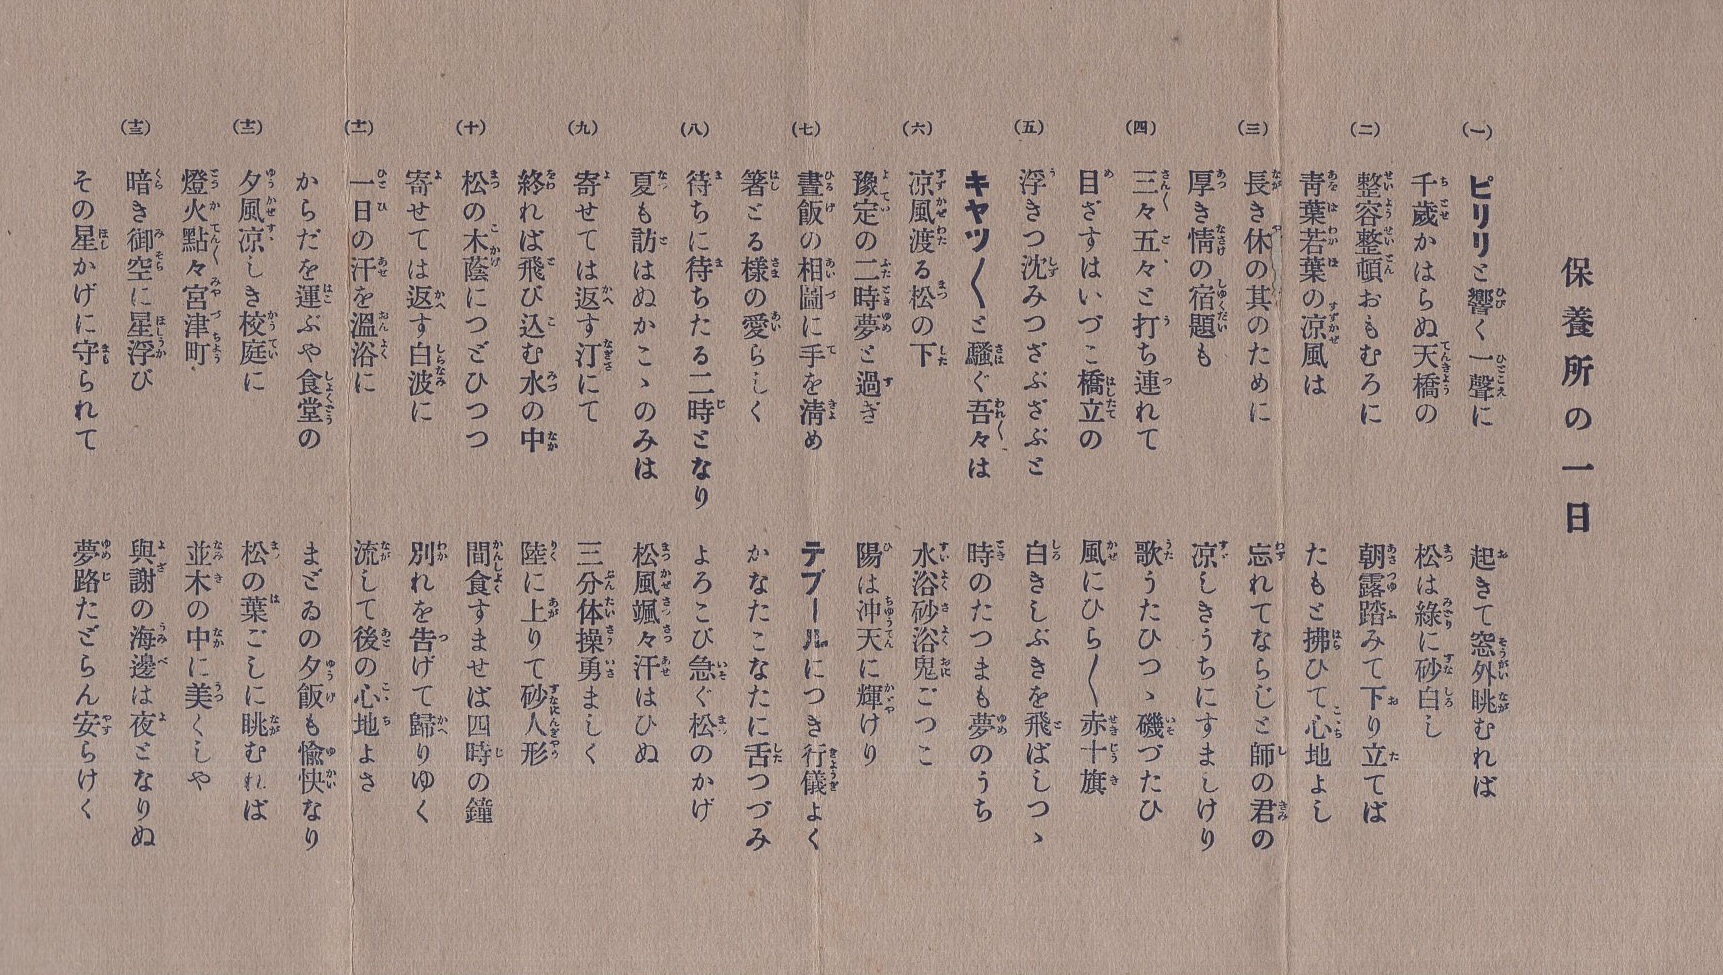 保養所の一日
(一) ピリリと響く一聲に 起きて窓外眺むれば
千歲かはらぬ天橋の 松は綠に砂白し
(二) 整容整頓おもむろに 朝露踏みて下り立てば
靑葉若葉の凉風は たもと拂ひて心地よし
(三) 長き休の其のために 忘れてならじと師の君の
厚き情の宿題も 凉しきうちにすましけり
(四) 三々五々と打ち連れて 歌うたひつゝ磯づたひ
目ざすはいづこ橋立の 風にひら〱赤十旗
(五) 浮きつ沈みつざぶざぶと 白きしぶきを飛ばしつゝ
キヤツ〱と騷ぐ吾々は 時のたつまも夢のうち
(六) 凉風渡る松の下 水浴砂浴鬼ごつこ
豫定の二時夢と過ぎ 陽は沖天に輝けり
(七) 晝飯の相圖に手を淸め テブールにつき行儀よく
箸とる樣の愛らしく かなたこなたに舌つづみ
(八) 待ちに待ちたる二時となり よろこび急ぐ松のかげ
夏も訪はぬかこゝのみは 松風颯々汗はひぬ
(九) 寄せては返す汀にて 三分体操勇ましく
終れば飛び込む水の中 陸に上りて砂人形
(十) 松の木蔭につどひつつ 間食すませば四時の鐘
寄せては返す白波に 別れを告げて歸りゆく
(十一) 一日の汗を溫浴に 流して後の心地よさ
からだを運ぶや食堂の まどゐの夕飯も愉快なり
(十二) 夕風凉しき校庭に 松の葉ごしに眺むれば
燈火點々宮津町 並木の中に美くしや
(十三) 暗き御空に星浮び 與謝の海邊は夜となりぬ
その星かげに守られて 夢路たどらん安らけく